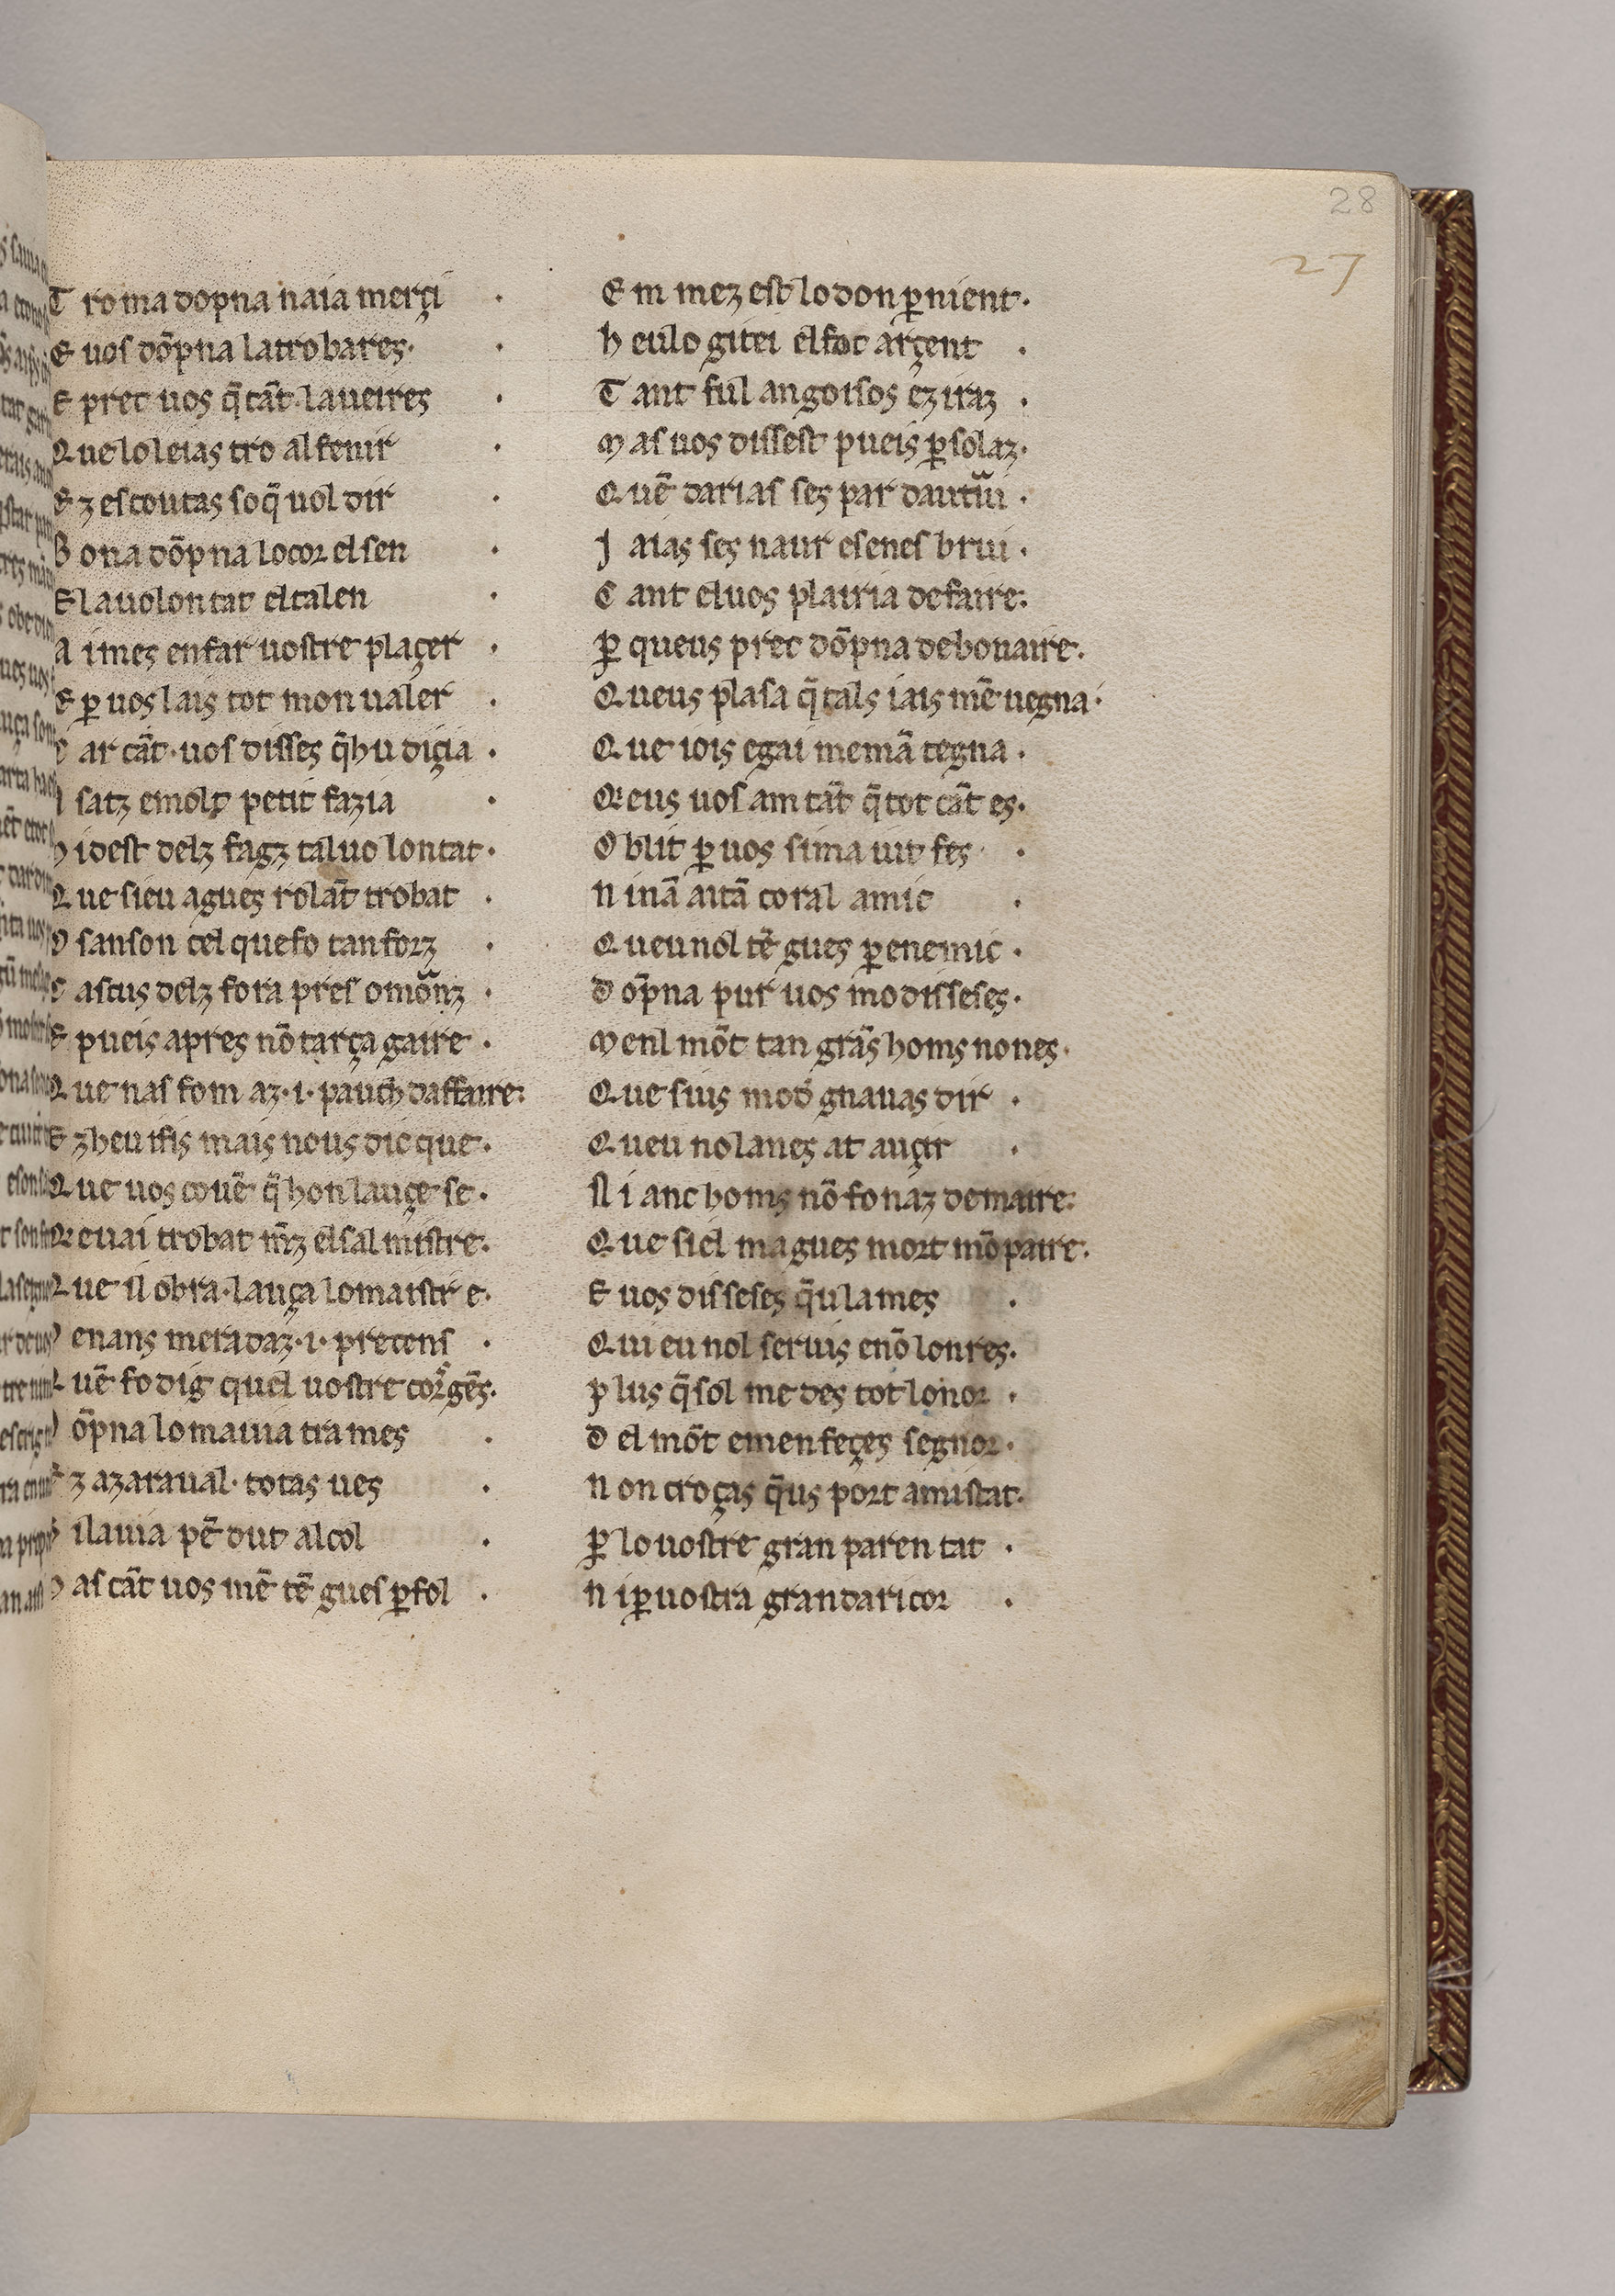 28
27
T ro ma dopna naia merçi ·
E uos dõpna la trobares· ·
E prec uos q̃ cãt·la ueires ·
Que lo leias tro al fenir ·
E z escoutas so q̃ uol dir ·
B ona dõpna lo cor el sen ·
E la uolontat el talen ·
A i mes en far uostre plaçer ·
E ꝑ uos lais tot mon ualer ·
C ar cãt·uos disses q̃hu diçia ·
satz e molt petit fazia ·
h idest delz fagz tal uolontat·
Q ue sieu agues rolãt trobat ·
O sanson cel que fo tan forz ·
C ascus delz fora pres o morz ·
E pueis apres nõ tarça gaire ·
Q ue nas fom az·i·pauch daffaire:
E z heu ifis mais nous dic que·
Q ue uos couẽ q̃ hon lauçe se·
Q: euai trobat el salmistre·
Q ue il obra·lauça lo maistre·
enans mera daz·i·preçens ·
Q uẽ fo dig quel uostre cors gẽs·
D õpna lo mauia trames ·
E z azaraual·totas ues ·
S ilauia pẽdut al col ·
M as cãt uos mẽ tẽgues ꝑ fol ·
E m mez est lo don ꝑ nient·
h eu lo gitei el foc arçent ·
T ant fui angoisos ez iraz ·
M as uos dissest pueis ꝑ solaz·
Q uẽ darias ses par dautrui ·
J aias ses naur e senes brui ·
C ant el uos plairia de faire:
ꝑ queus prec dõpna debonaire·
Q ueus plasa q̃ tals iais mẽ uegna·
Q ue iois e gai me mãtegna ·
Q: eus uos am tãt q̃ tot cãt es·
O blit ꝑ uos si ma uit fes ·
N inã aitã coral amic ·
Q ueu nol tẽgues ꝑ enemic ·
D opña pur uos mo disseses·
M enl mõt tan grãs homs non es·
Q ue suis mod gnauas dir ·
Q ueu nol anes at auçir ·
N i anc homs nõ fo naz de maire:
Q ue siel magues mort mõ paire·
E uos disseses q̃u lames ·
Q ui eu nol seruis e nõ lonres·
P lus q̃ sol me des tot lonor ·
D el mõt e men feçes segnor·
N on croças q̃us port amistat·
ꝑ lo uostre gran parentat ·
N i ꝑ uostra granda ricor ·